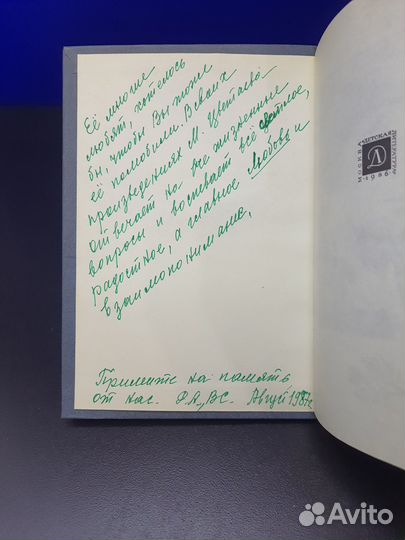 Её многие
любят, хотелось
бы, чтобы Вы тоже
её полюбили. В своих
произведениях М. Цветаева
отвечает на все жизненные
вопросы и воспевает всё светлое,
радостное, а главное любовь и
взаимопонимание,
Примите на память
от нас. Р.А, ВС. Август 1987г
МОСКВА
ДЕТСКАЯ
ЛИТЕРАТУРА
1986
Avito